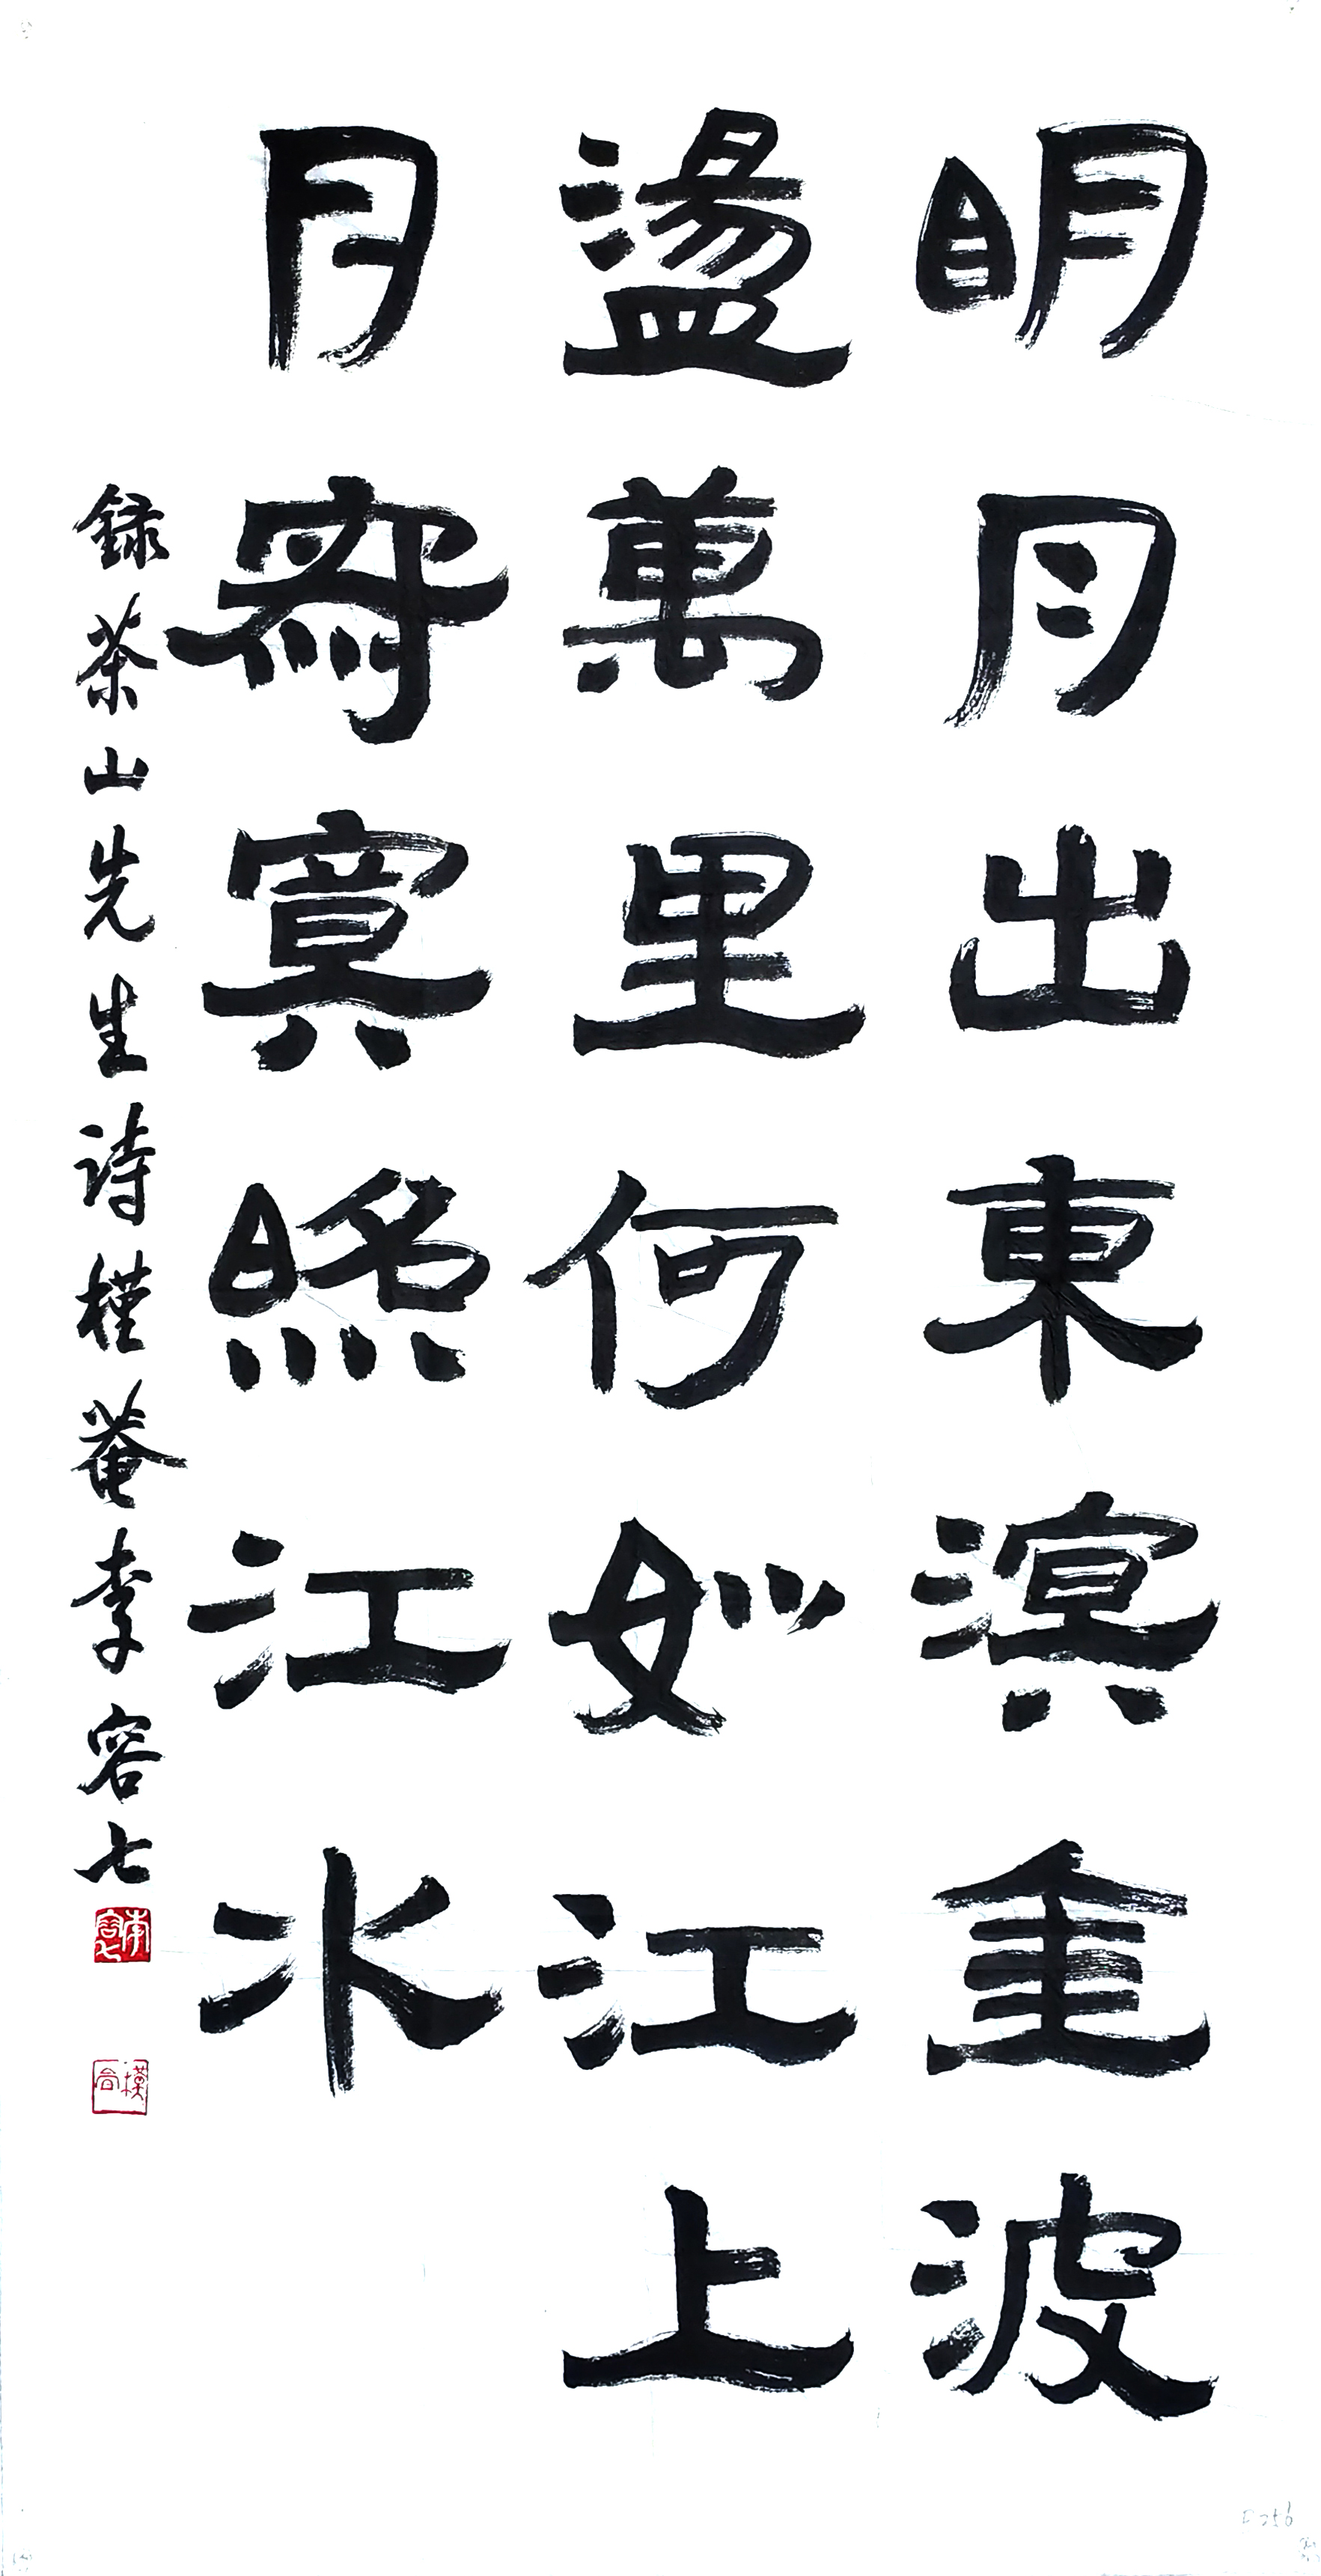 明月出東溟重波
盪萬里何如江上
月寂寞照江水
録茶山先生詩槿菴李容七
李容七
F256